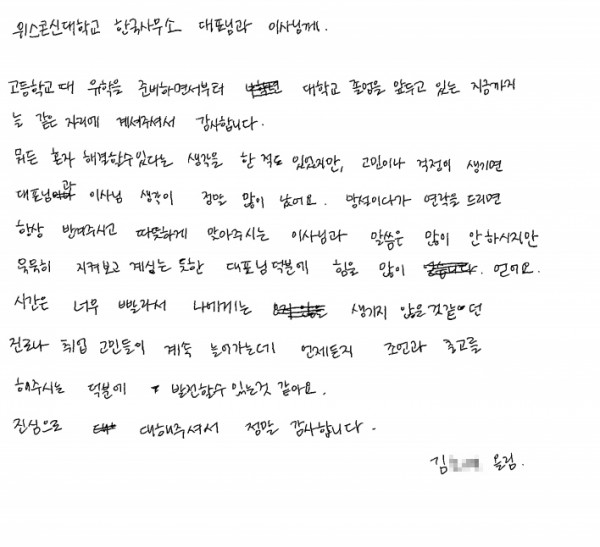 위스콘신대학교 한국사무소 대표님과 이사님께.
고등학교때 유학을 준비하면서부터 대학교 졸업을 앞두고 있는 지금까지
늘 같은 자리에 계셔주셔서 감사합니다.
뭐든 혼자 해결할수있다는 생각을 한 적도 있었지만, 고민이나 걱정이 생기면
대표님과 이사님 생각이 정말 많이 났어요. 망설이다가 연락을 드리면
항상 반겨주시고 따뜻하게 맞아주시는 이사님과 말씀은 많이 안하시지만
묵묵히 지켜보고 계실듯한 대표님 덕분에 힘을 많이 얻어요.
시간은 너무 빨라서 나에게는 생기지 않을것같던
진로나 취업 고민들이 계속 늘어가는데 언제든지 조언과 충고를
해주시는 덕분에 발전할수 있는것 같아요.
진심으로 대해주셔서 정말 감사합니다.
김 올림.